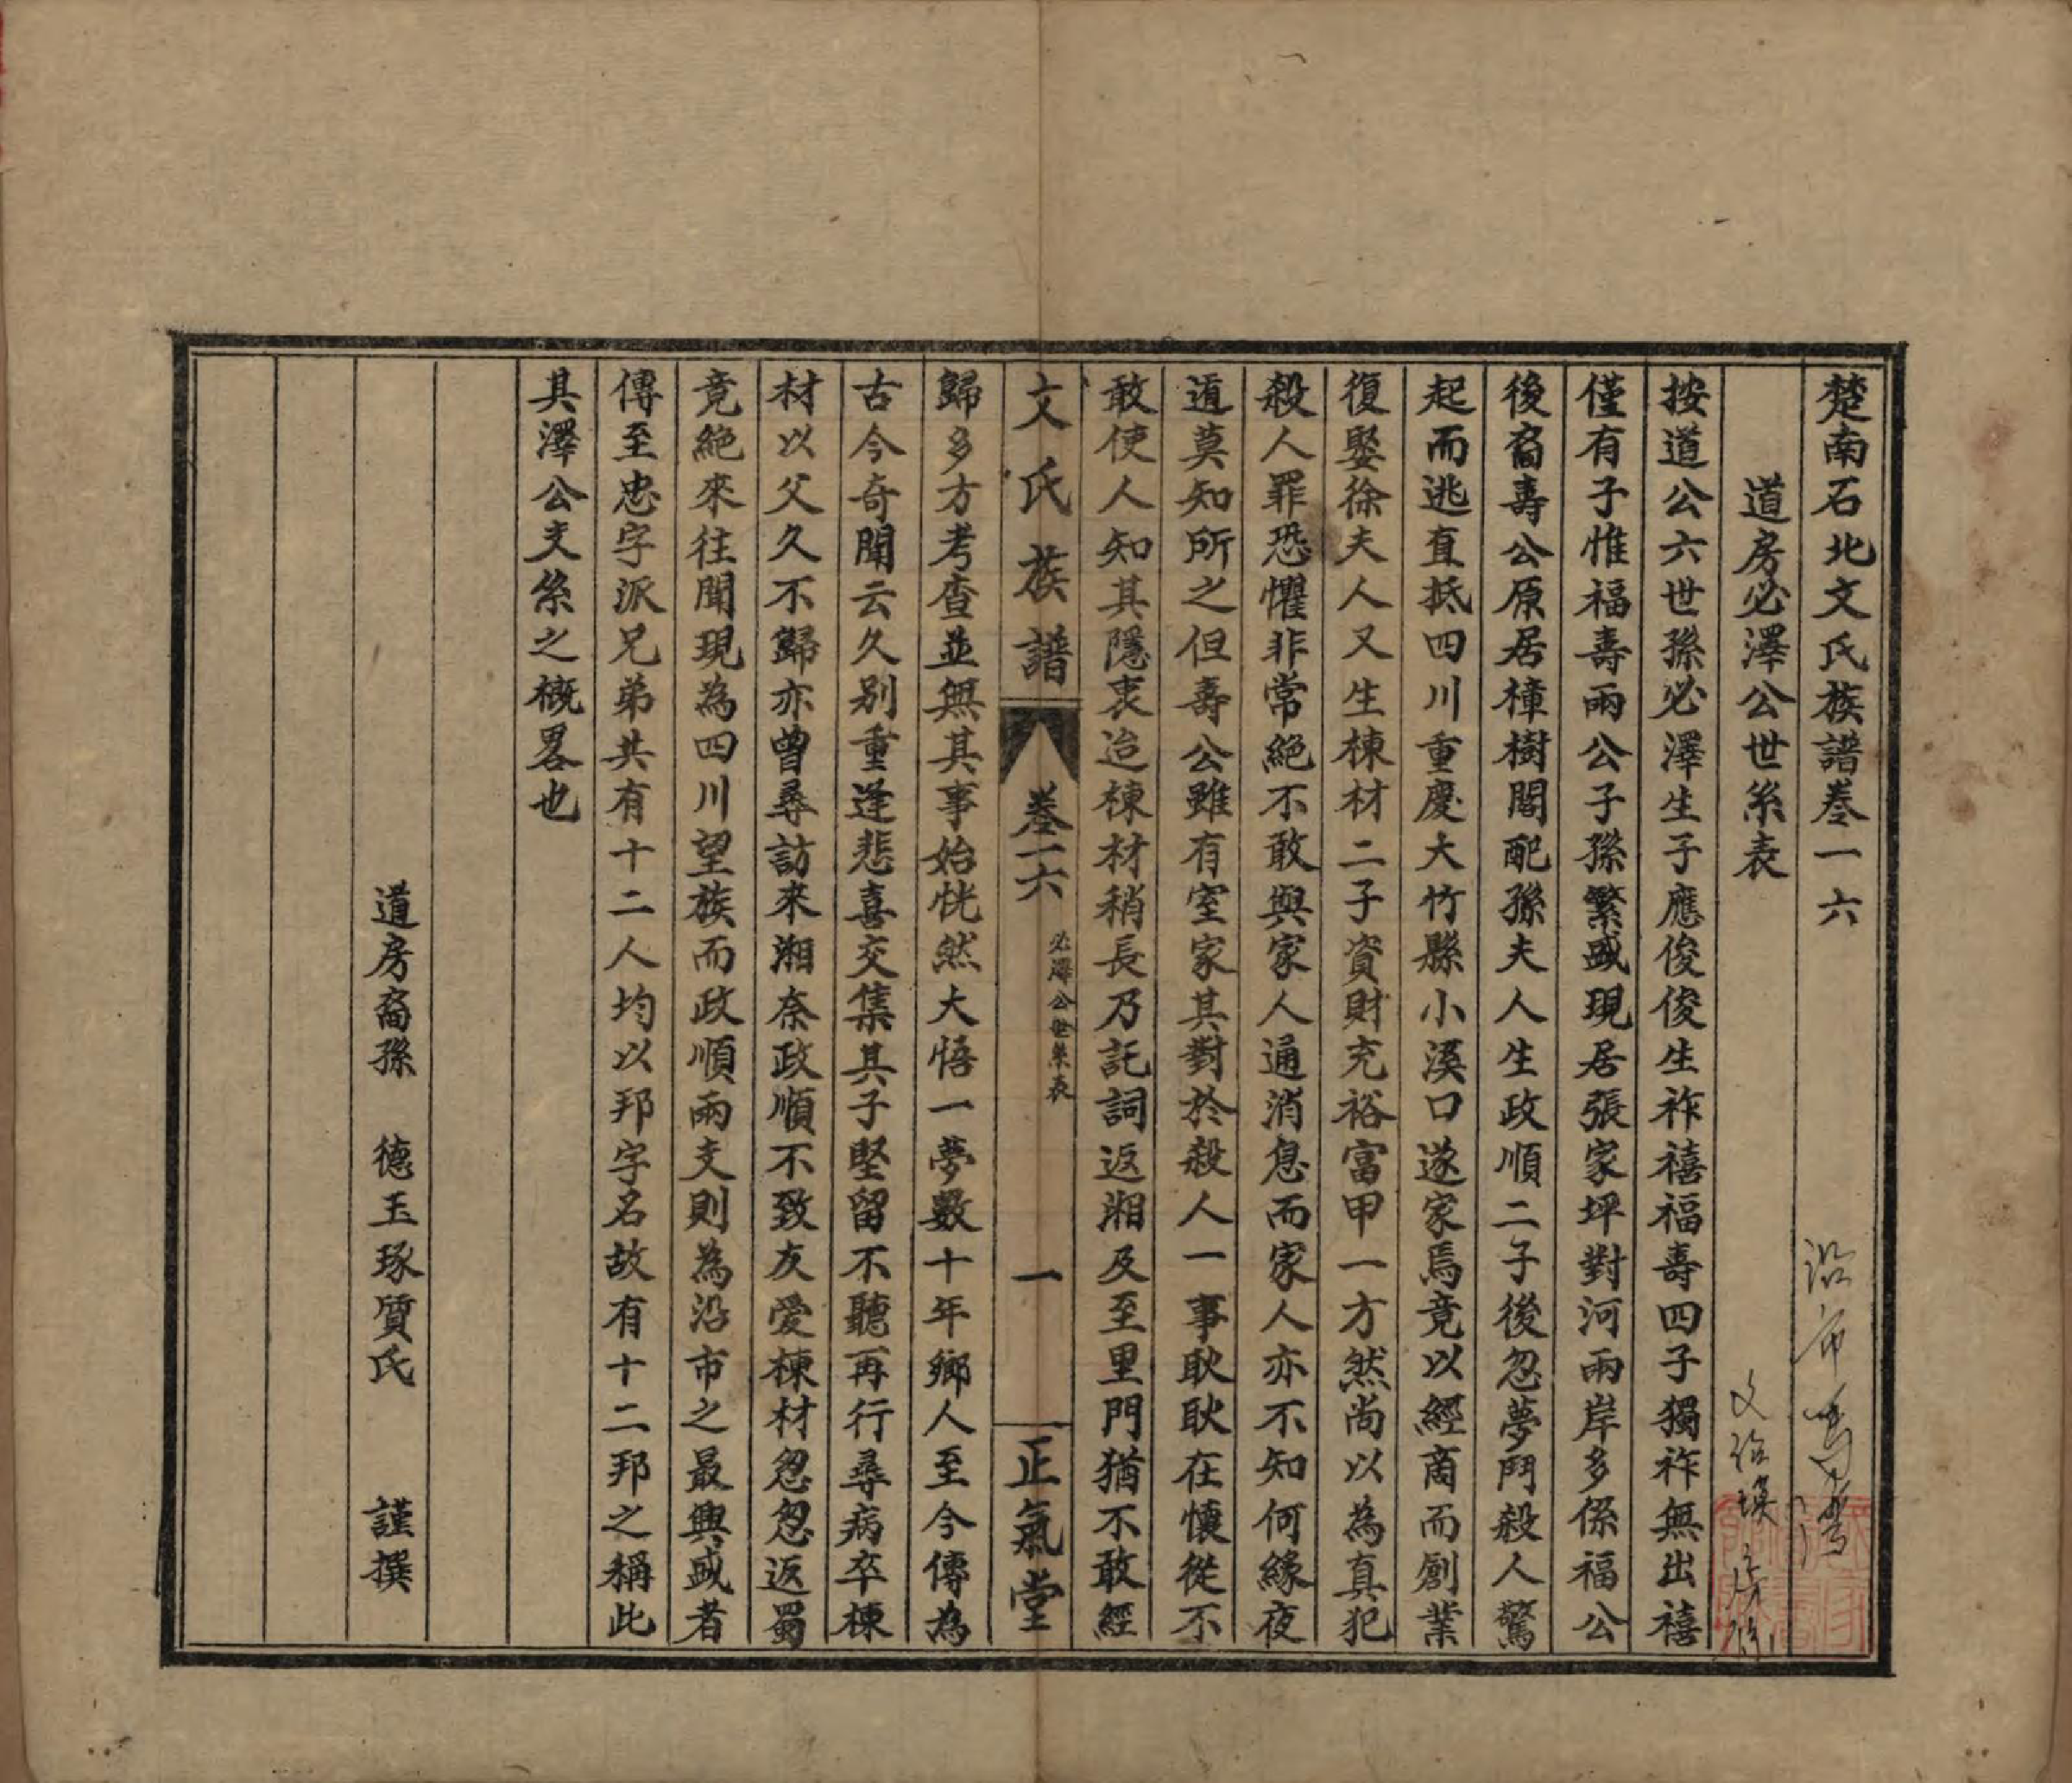 楚南石北文氏族譜卷一六
道房必澤公世系表
按道公六世孫必澤生子應俊俊生祚禧福壽四子獨祚無出禧
僅有子惟福壽兩公子孫繁盛現居張家坪對河兩岸多係福公
後裔壽公原居樟樹閣配孫夫人生政順二子後忽夢鬥殺人驚
起而逃直抵四川重慶大竹縣小溪口遂家焉竟以經商而創業
復娶徐夫人又生棟材二子資財充裕富甲一方然尚以為真犯
殺人罪恐懼非常絕不敢與家人通消息而家人亦不知何緣夜
遁莫知所之但壽公雖有室家其對於殺人一事耿耿在懷從不
敢使人知其隱衷迨棟材稍長乃託詞返湘及至里門猶不敢經
文氏族譜
卷一六
必澤公世系表
一
正氣堂
歸多方考查並無其事始恍然大悟一夢數十年鄉人至今傳為
古今奇聞云久別重逢悲喜交集其子堅留不聽再行尋病卒棟
材以父久不歸亦曾尋訪來湘奈政順不致友愛棟材忽忽返蜀
竟絕來往聞現為四川望族而政順兩支則為沿市之最興盛者
傳至忠字派兄弟共有十二人均以邦字名故有十二邦之稱此
其澤公支系之概畧也
道房裔孫　德玉琢質氏　謹撰